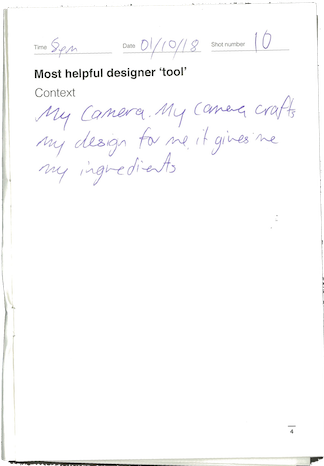 Time 8pm Date 01/10/18 Shot number 10
Most helpful designer 'tool'
Context
My Camera. My camera crafts
my design for me. it gives me
my ingredients
4